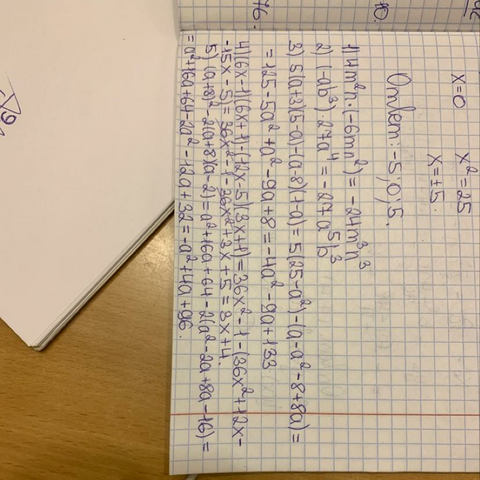 x=0 x²=25
x=±5
Ответ: -5;0;5.
1) 4m²n·(-6mn²)=-24m³n³
2) (-ab³)·27a⁴=-27a⁵b³
3) 5(a+5)(5-a)-(a-8)(1-a)=5(25-a²)-(a-a²-8+8a)=
=125-5a²+a²-9a+8=-4a²-9a+133
4)(6x-1)(6x+1)-(12x-5)(3x+1)=36x²-1-(36x²+12x-
-15x-5)=36x²-1-36x²+3x+5=3x+4.
5) (a+8)²-2(a+8)(a-2)=a²+16a+64-2(a²-2a+8a-16)=
=a²+16a+64-2a²-12a+32=-a²+4a+96.